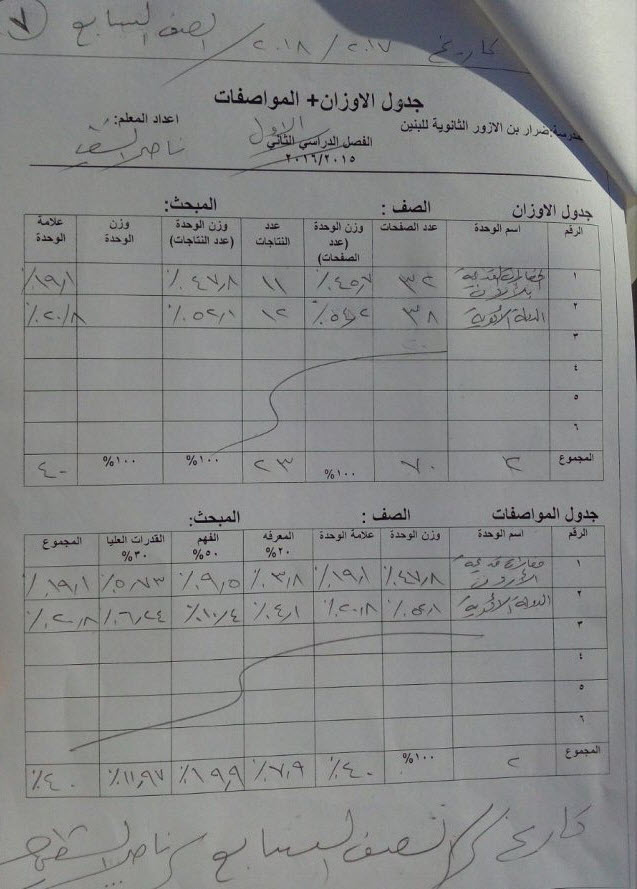 تاريخ ٢٠١٧ / ٢٠١٨ / الصف السابع ٧
جدول الاوزان+ المواصفات
مدرسة:ضرار بن الازور الثانوية للبنين
الفصل الدراسي الثاني الاول
اعداد المعلم:
٢٠١٦/٢٠١٥
جدول الاوزان الصف : المبحث:
الرقم اسم الوحدة عدد الصفحات وزن الوحدة (عدد الصفحات) عدد النتاجات وزن الوحدة (عدد النتاجات) وزن الوحدة علامة الوحدة
١ حضارات قديمة بلأردن ٣٢ ٤٥,٧٪ ١١ ٤٧,٨٪ ١٩,١٪
٢ الدولة الأموية ٣٨ ١٢ ٥٢,١٪ ٢٠,٨٪
٣
٤
٥
٦
المجموع ٢ ٧٠ ١٠٠% ٢٣ ١٠٠% ١٠٠% ٤٠
جدول المواصفات الصف : المبحث:
الرقم اسم الوحدة وزن الوحدة علامة الوحدة المعرفه ٢٠% الفهم ٥٠% القدرات العليا ٣٠% المجموع
١ حضارات قديمة ٤٧,٨٪ ١٩,١٪ ٣,٨٪ ٩,٥٪ ٥,٧٣٪ ١٩,١٪
٢ الدولة الأموية ٢٠,٨٪ ٤,١٪ ١٠,٤٪ ٦,٢٤٪ ٢٠,٨٪
٣
٤
٥
٦
المجموع ٢ ١٠٠% ٤٠٪ ٧,٩٪ ١٩,٩٪ ١١,٩٧٪ ٤٠٪
تاريخ / الصف السابع / ناصر